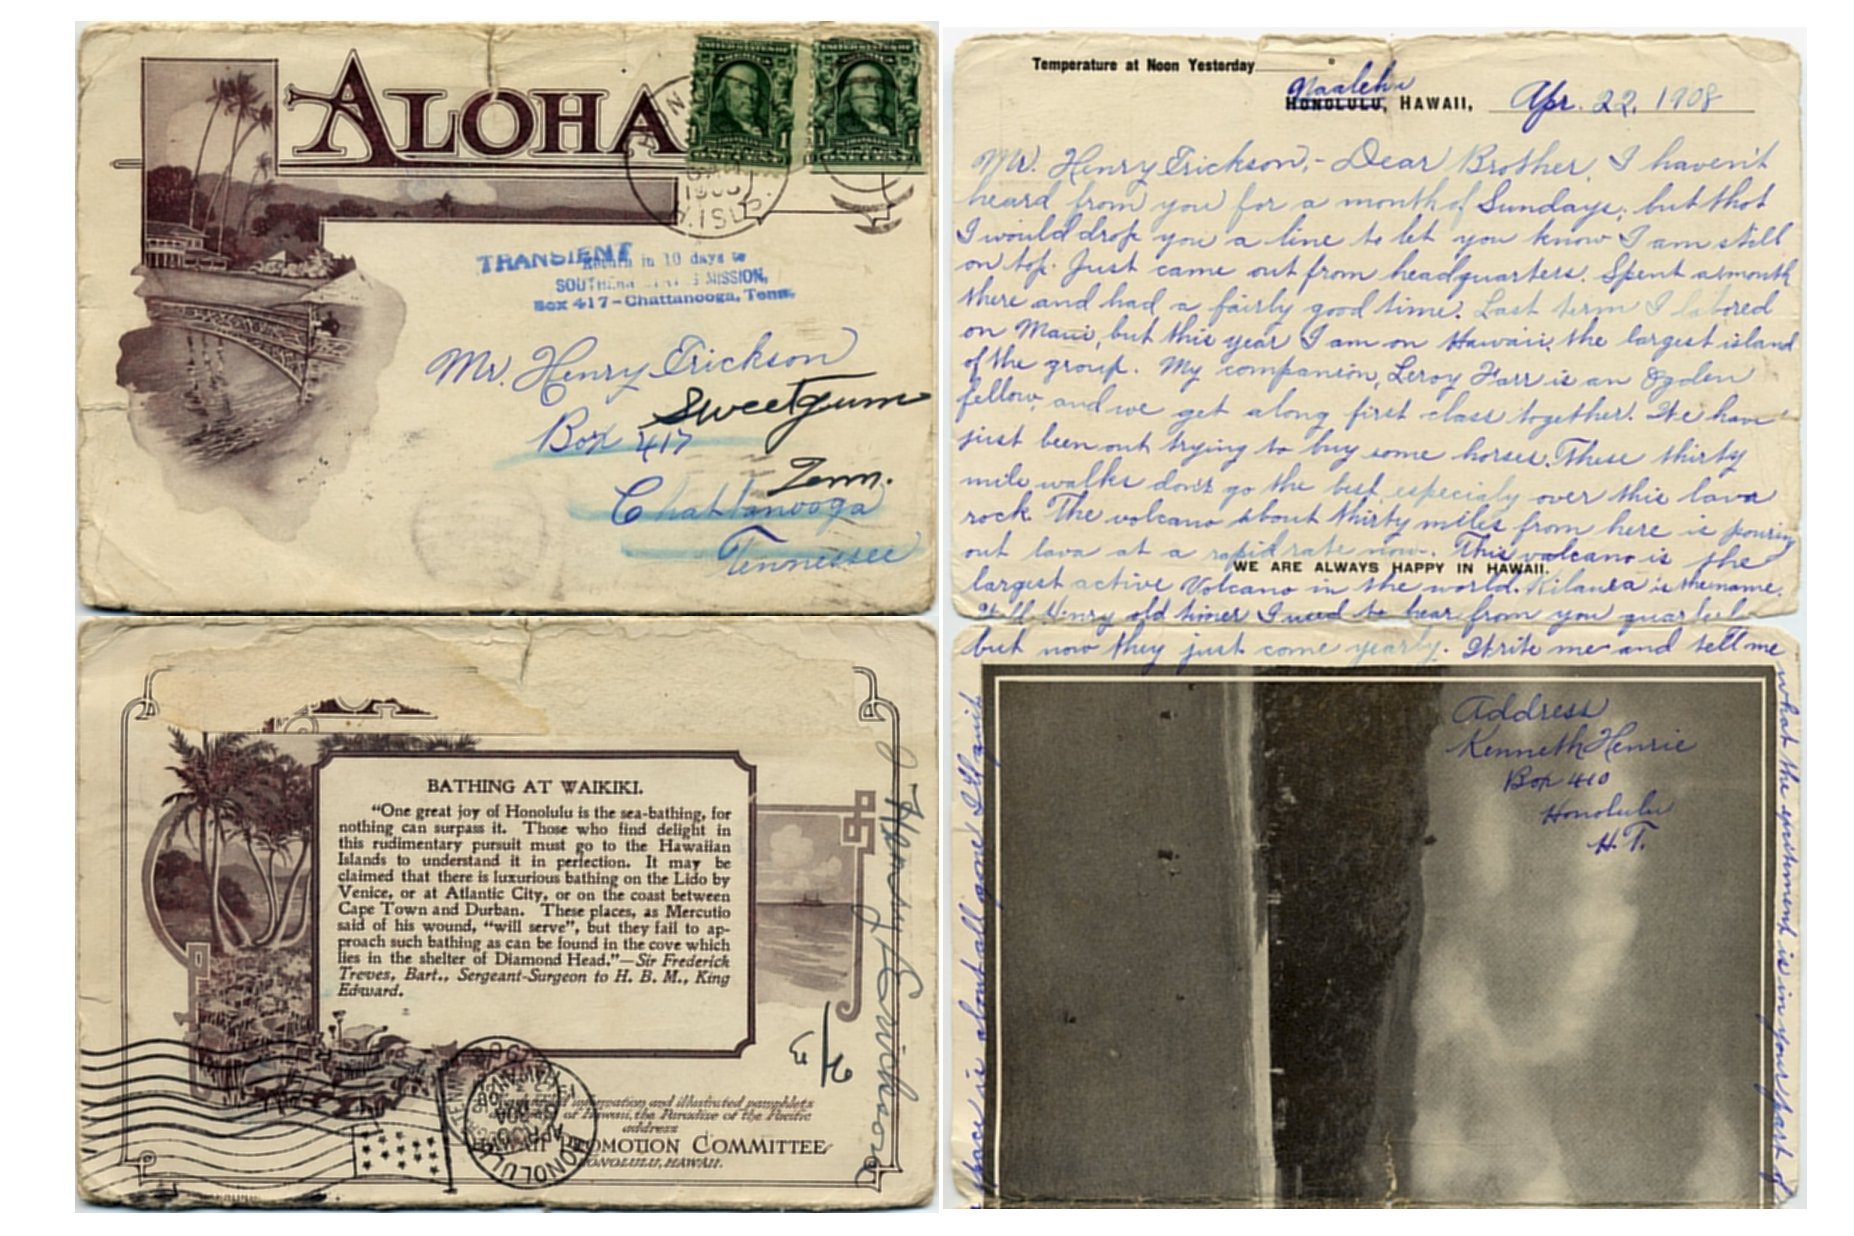 ALOHA
TRANSIENT
Return in 10 days to
SOUTHERN STATES MISSION,
Box 417-Chattanooga, Tenn.
Mr. Henry Erickson
Sweetgum
Box 417
Tenn.
Chattanooga
Tennessee
1
1
H. ISL'DS.
BATHING AT WAIKIKI.
"One great joy of Honolulu is the sea-bathing, for
nothing can surpass it. Those who find delight in
this rudimentary pursuit must go to the Hawaiian
Islands to understand it in perfection. It may be
claimed that there is luxurious bathing on the Lido by
Venice, or at Atlantic City, or on the coast between
Cape Town and Durban. These places, as Mercutio
said of his wound, "will serve", but they fail to ap-
proach such bathing as can be found in the cove which
lies in the shelter of Diamond Head."—Sir Frederick
Treves, Bart., Sergeant-Surgeon to H. B. M., King
Edward.
information and illustrated pamphlets
of Hawaii, the Paradise of the Pacific
address
PROMOTION COMMITTEE
HONOLULU, HAWAII.
HONOLULU
J Henry Erickson
Temperature at Noon Yesterday °
Naalehu
HONOLULU, HAWAII, Apr. 22, 1908
Mr. Henry Erickson,- Dear Brother, I haven't
heard from you for a month of Sundays, but thot
I would drop you a line to let you know I am still
on top. Just came out from headquarters. Spent a month
there and had a fairly good time. Last term I labored
on Maui, but this year I am on Hawaii, the largest island
of the group. My companion, Leroy Farr is an Ogden
fellow, and we get along first class together. We have
just been out trying to buy some horses. These thirty
mile walks don't go the best, especialy over this lava
rock. The volcano about thirty miles from here is pouring
out lava at a rapid rate now. This volcano is the
WE ARE ALWAYS HAPPY IN HAWAII.
largest active Volcano in the world. Kilauea is the name.
Well Henry old timer I used to hear from you quarterly
but now they just come yearly. Write me and tell me
what the excitment is in your part of
space is about all gone I'll quit
Address
Kenneth Henrie
Box 410
Honolulu
H. T.